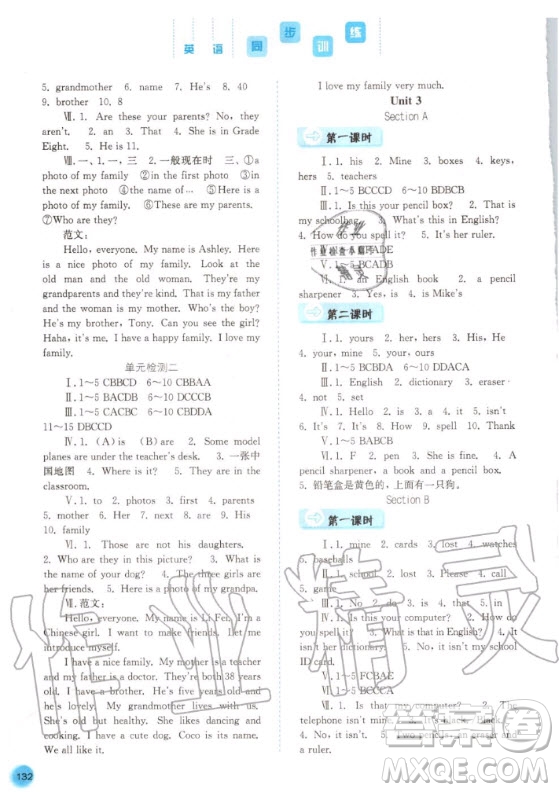 英语同步训练
5. grandmother 6. name 7. He's 8. 40
9. brother 10. 8
Ⅶ. 1. Are these your parents? No, they
aren't. 2. an 3. That 4. She is in Grade
Eight. 5. He is 11.
Ⅷ. 一、1. 一, 三 2. 一般现在时 三、①a
photo of my family ②in the first photo ③in
the next photo ④the name of… ⑤a photo of
my family ⑥These are my parents.
⑦Who are they?
范文:
Hello, everyone. My name is Ashley. Here
is a nice photo of my family. Look at the
old man and the old woman. They're my
grandparents and they're kind. The man is
my father and the woman is my mother. Who's
the boy? He's my brother, Tony. Can you
find me? I'm next to the funny girl. Who's she?
Haha, it's me. I have a happy family. I love my
family.
单元检测二
Ⅰ. 1~5 CBBCD 6~10 CBBAA
Ⅱ. 1~5 BACDB 6~10 DCCCC
Ⅲ. 1~5 CACBC 6~10 CBDDA
11~15 DBCCD
Ⅳ. 1. (A) is (B) are 2. Some model
planes are under the teacher's desk. 3. 一张中
国地图 4. Where is it? 5. They are in the
classroom.
Ⅴ. 1. to 2. photos 3. first 4. parents
5. mother 6. Her 7. next 8. and 9. His
10. family
Ⅵ. 1. Those are not his daughters.
2. Who are they in this picture? 3. What is
the name of your dog? 4. The three girls are
her friends. 5. Here is a photo of my grandpa.
Ⅶ. 范文:
Hello, everyone. My name is Li Fei. I'm a
Chinese girl. I come from a happy family. Let me
introduce myself.
Look at my family photo. My father is a
doctor. My mother is a teacher
and my They are both 38 years
old. I have a brother. He's five years old and
he is lovely. My grandmother lives
with us. She likes dancing and
cooking. Our dog Coco is its name.
We all like the
132
I love my family very much.
Unit 3
Section A
第一课时
Ⅰ. 1. his 2. Mine 3. boxes 4. keys,
hers 5. teachers
Ⅱ. 1~5 BCCCD 6~10 BDBCB
Ⅲ. 1. Is this your pencil box? 2. That is
my schoolbag. 3. What's this in English?
4. How do you spell it? 5. It's her ruler.
Ⅴ. 1~5 BCADB
Ⅵ. 1. an English book 2. a pencil
sharpener 3. Yes, is 4. is Mike's
第二课时
Ⅰ. 1. yours 2. her, hers 3. His, He
4. your, mine 5. your
Ⅱ. 1~5 BCBDA 6~10 DDACA
Ⅲ. 1. English 2. dictionary 3. eraser
4. not 5. set
Ⅳ. 1. Hello 2. is 3. a 4. it 5. isn't
6. It's 7. It's 8. How 9. spell 10. Thanks
Ⅴ. 1~5 BABCB
Ⅵ. 1. F 2. pen 3. She is fine. 4. A
pencil sharpener, a book and a pencil box.
5. 铅笔盒是黄色的,里面有一只狗。
Section B
第一课时
Ⅰ. 1. mine 2. cards 3. lost 4. watches
5. baseballs
Ⅱ. 1. found 2. Please 3. lost 4. call
5. game
Ⅲ. 1. No 2. do 3. that 4. in 5. it
Ⅳ. 1. Is this your computer? 2. How do
you spell it? 3. What is that in English? 4. They
aren't her 5. I lost my school
ID card.
Ⅴ. 1~5 FCBAE
Ⅵ. 1~5 BCCCA
Ⅶ. 1. Is that my computer? 2. The
telephone isn't mine. 3. It's black. 4. An eraser
and a ruler.
作业精灵
答案圈
MXQE.COM